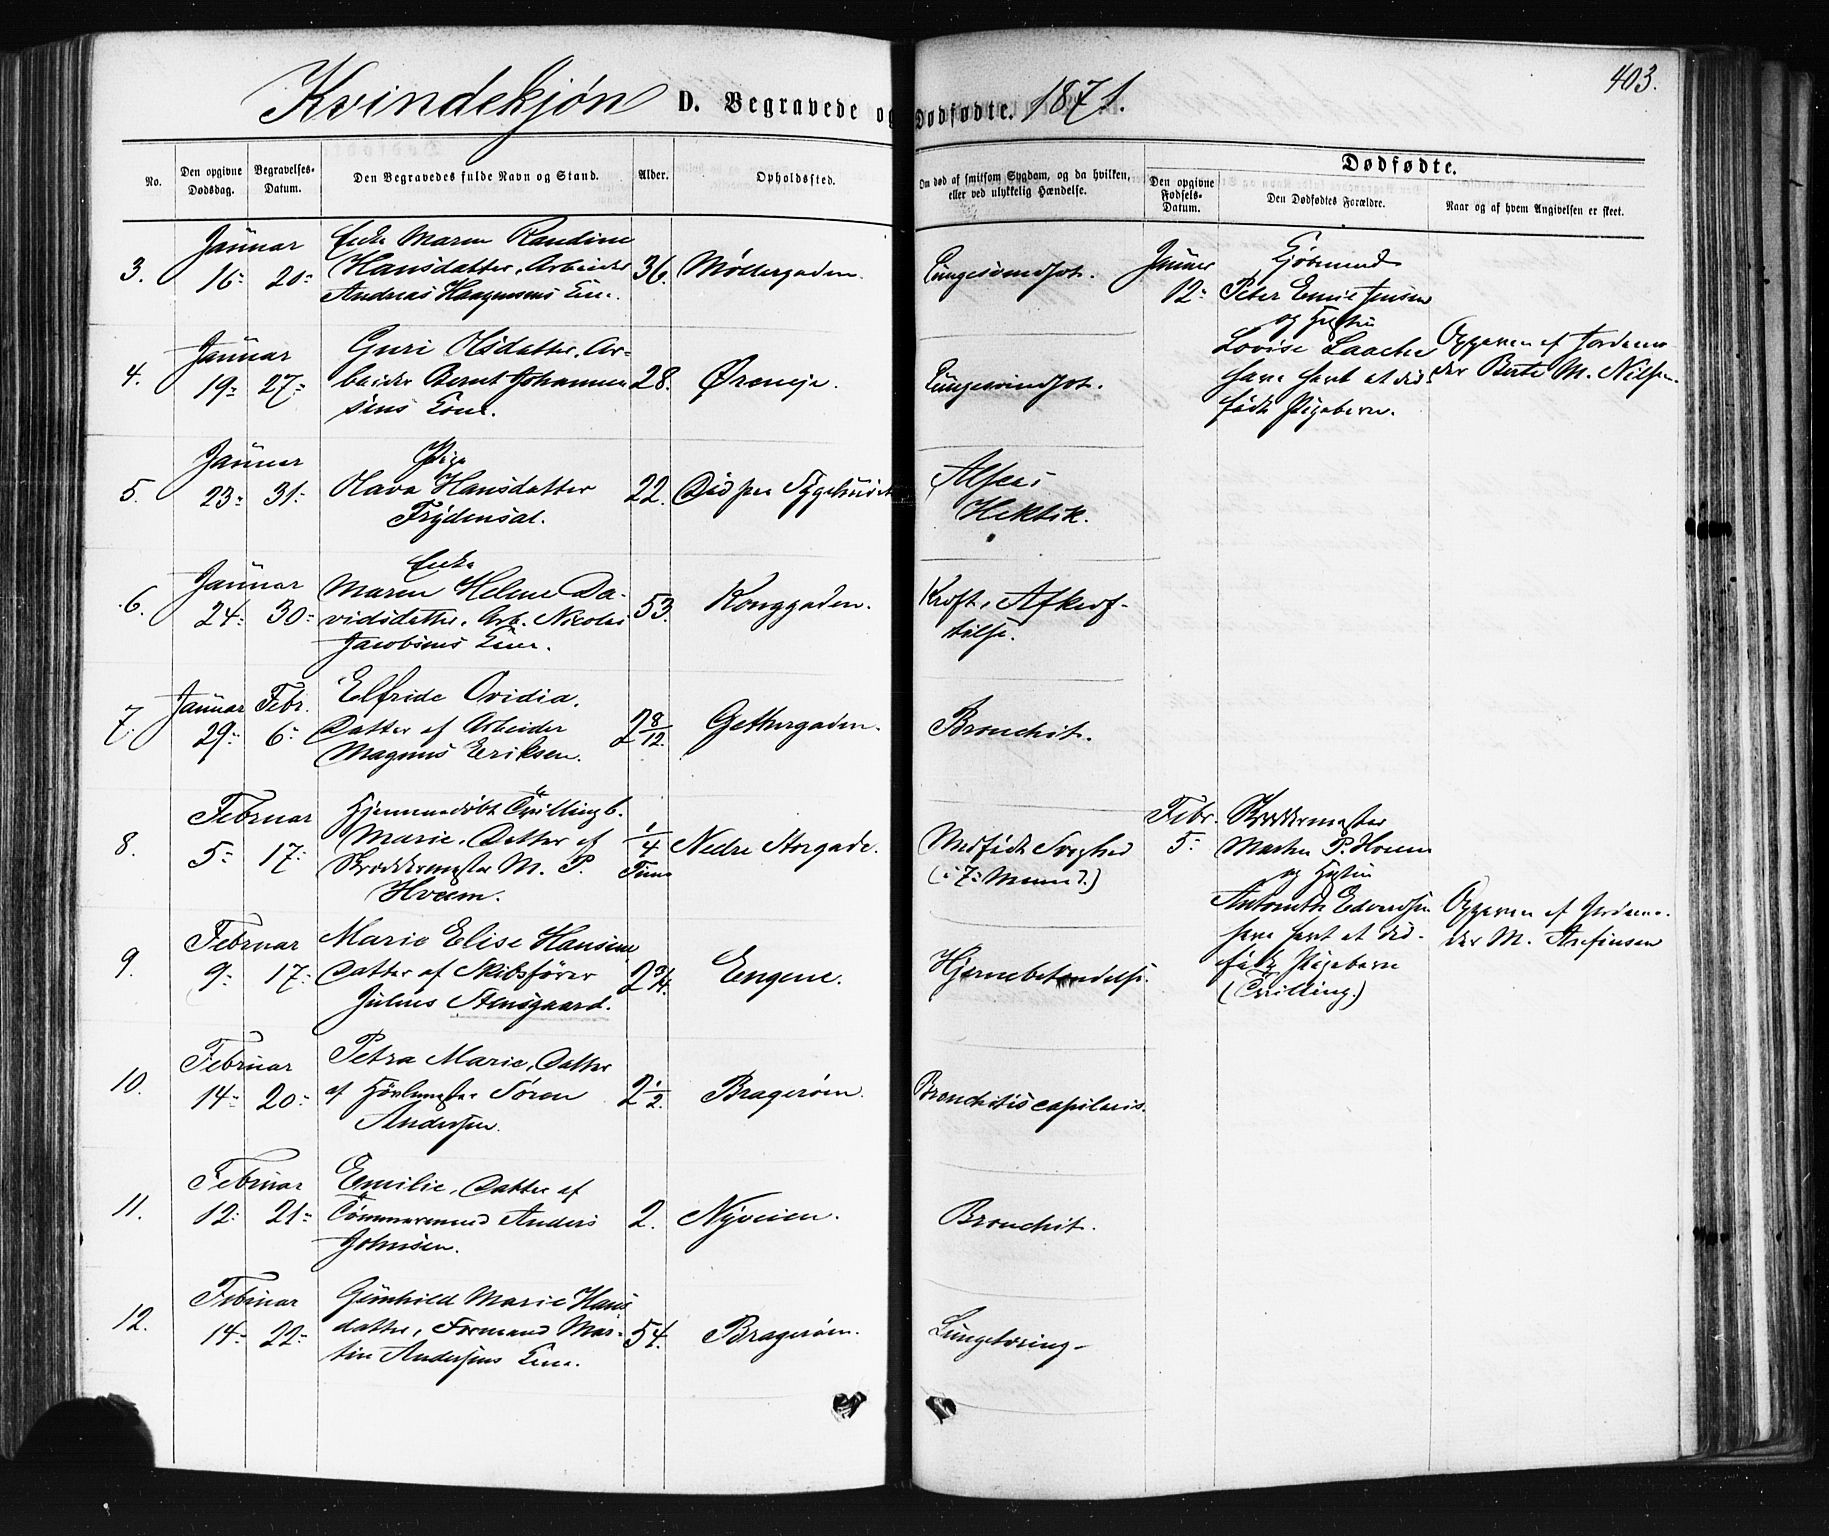 403.
Kvindekjøn D. Begravede og Dødfødte. 1871.
No.
Den opgivne Dødsdag.
Begravelses-Datum.
Den Begravedes fulde Navn og Stand.
Alder.
Opholdssted.
Om død af smitsom Sygdom, og da hvilken, eller ved ulykkelig Hændelse.
Dødfødte.
Den opgivne Fødsels-Datum.
Den Dødfødtes Forældre.
Naar og af hvem Angivelsen er skeet.
3.
Januar
16- 20-
Enke Maren Randine
Hansdatter, Arbeider
Andreas Haagensens Enke.
36.
Møllergaden.
Lungesvindsot.
Januar
12-
Kjøbmand
Peter Emil Jensen
og Hustru
Lovise Laache
have havt et død-
født Pigebarn.
Opgaven af Jordemo-
der Berte M. Nilsen.
4.
Januar
19- 27-
Guri Olsdatter, Ar-
beider Bernt Johannes-
sens Kone.
28.
Øreneje.
Lungesvindsot.
5.
Januar
23- 31-
Pige
Olava Hansdatter
Frydensal.
22.
Død paa Sygehuset
Hektik.
6.
Januar
24- 30-
Enke
Maren Helene Da-
vidsdatter, Arb. Nicolai
Jacobsens Enke.
53.
Konggaden.
Kræft, Afkræf-
telse.
7.
Januar Febr.
29- 6-
Elfride Ovidia,
Datter af Arbeider
Magnus Eriksen.
2 8/12.
Gethergaden.
Bronchit.
8.
Februar
5- 17-
Hjemmedøbt Tvillingb.
Marie, Datter af
Skræddermester M. P.
Hveem.
1/4
Time
Nedre Storgade.
Medfødt Svaghed
(i 7- Maaned.)
Febr.
5-
Skræddermester
Marten P. Hveem
og Hustru
Antonette Edvardsen
have havt et død-
født Pigebarn
(Tvilling.)
Opgaven af Jordemo-
der M. Arefinsen
9.
Februar
9- 17-
Marie Elise Hansine
Datter af Skibsfører
Julius Stensgaard.
2 3/4.
Engene.
Hjernebetændelse.
10.
Februar
14- 20-
Petra Marie, Datter
af Søren
Andersen.
2 1/2.
Bragerøen.
Bronchitis capilaris.
11.
Februar
12- 21-
Emilie, Datter af
Tømmermand Anders
Johnsen.
2.
Nyveien.
Bronchit.
12.
Februar
14- 22-
Gunhild Marie Hans
datter, Formand Mar-
tin Andersens Enke.
54.
Bragerøen.
Lungetæring-